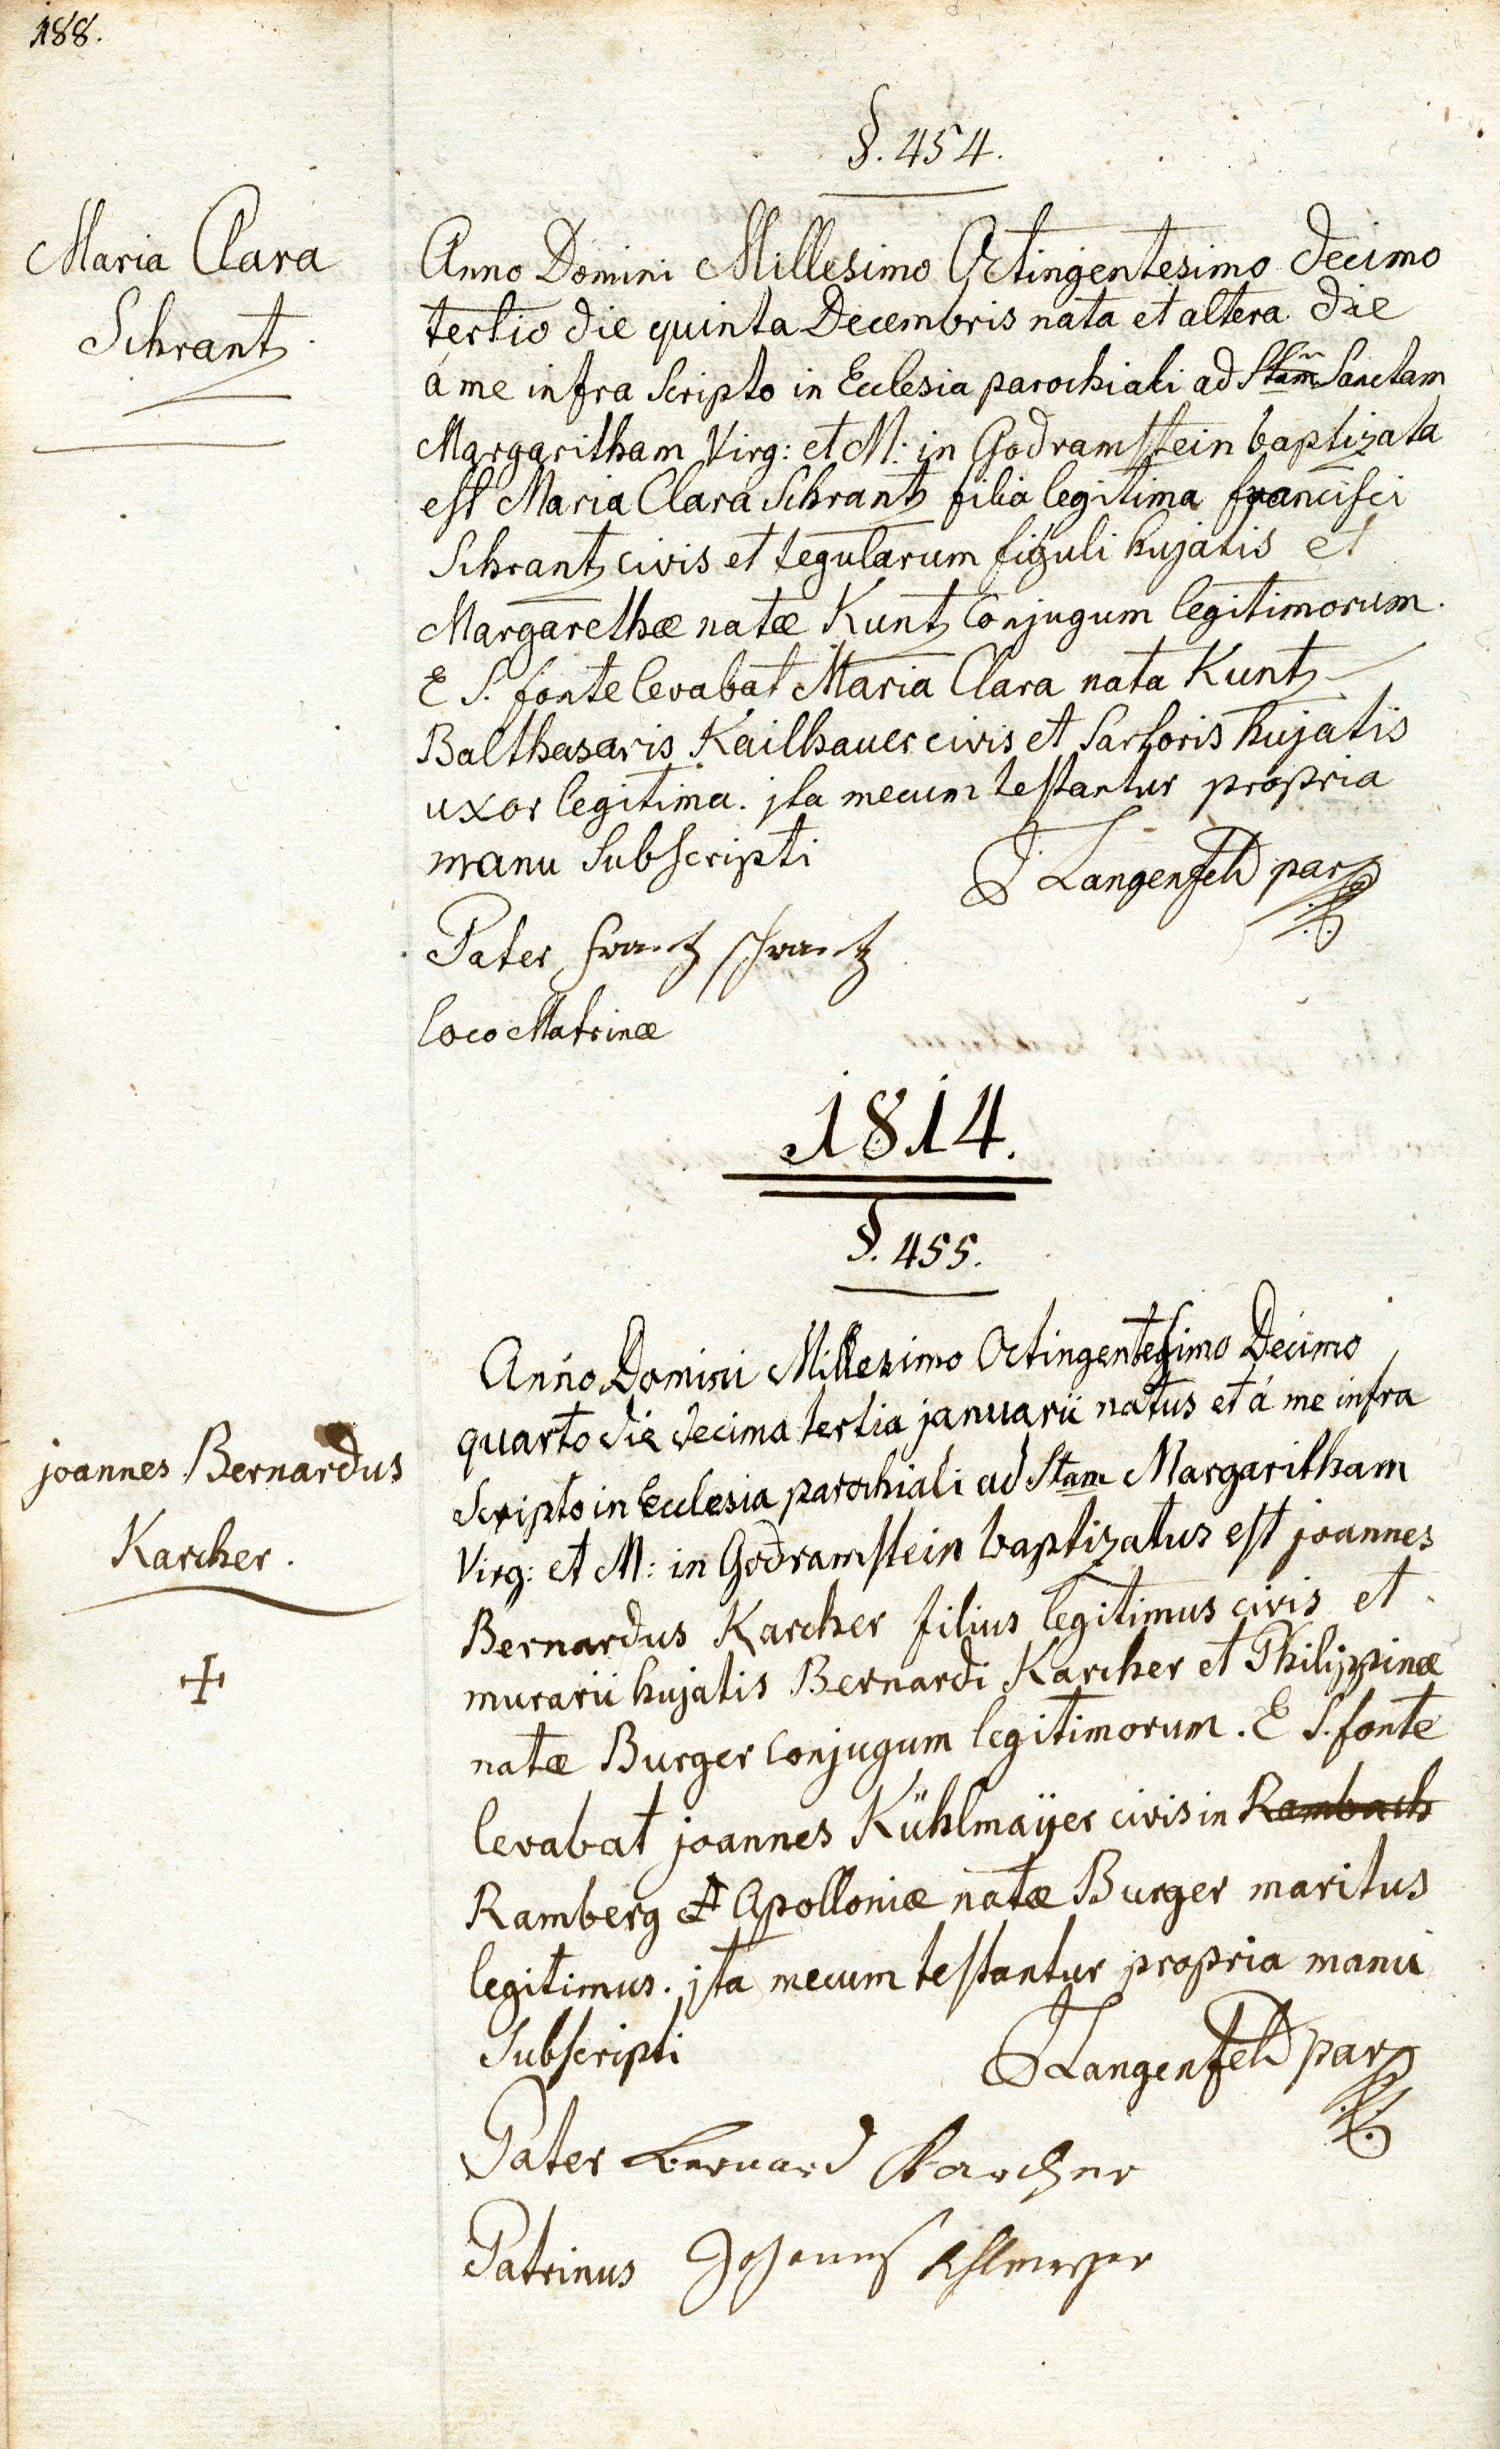 188.
§. 454.
Maria Clara
Schrantz.
Anno Domini Millesimo Octingentesimo decimo
tertio die quinta Decembris nata et altera die
á me infra scripto in Ecclesia parochiali ad Stam Sanctam
Margaritham Virg: et M: in Godramstein baptizata
est Maria Clara Schrantz filia legitima francisci
Schrantz civis et tegularum figuli hujatis et
Margarethæ natæ Kuntz Conjugum legitimorum.
E S. fonte levabat Maria Clara nata Kuntz
Balthasaris Kailhauer civis et Sartoris hujatis
uxor legitima. jta mecum testantur propria
manu Subscripti
J Langenfeld par
Pater frantz schrantz
loco Matrinæ
1814.
§. 455.
joannes Bernardus
Karcher.
Anno Domini Millesimo Octingentesimo Decimo
quarto die decima tertia januarii natus et á me infra
scripto in Ecclesia parochiali ad Stam Margaritham
Virg: et M: in Godramstein baptizatus est joannes
Bernardus Karcher filius legitimus civis et
murarii hujatis Bernardi Karcher et Philippinæ
natæ Burger conjugum legitimorum. E S. fonte
levabat joannes Kühlmaÿer civis in Rambach
Ramberg et Apolloniæ natæ Burger maritus
legitimus. jta mecum testantur propria manu
Subscripti
J Langenfeld par
Pater Bernard Karcher
Patrinus Johannes